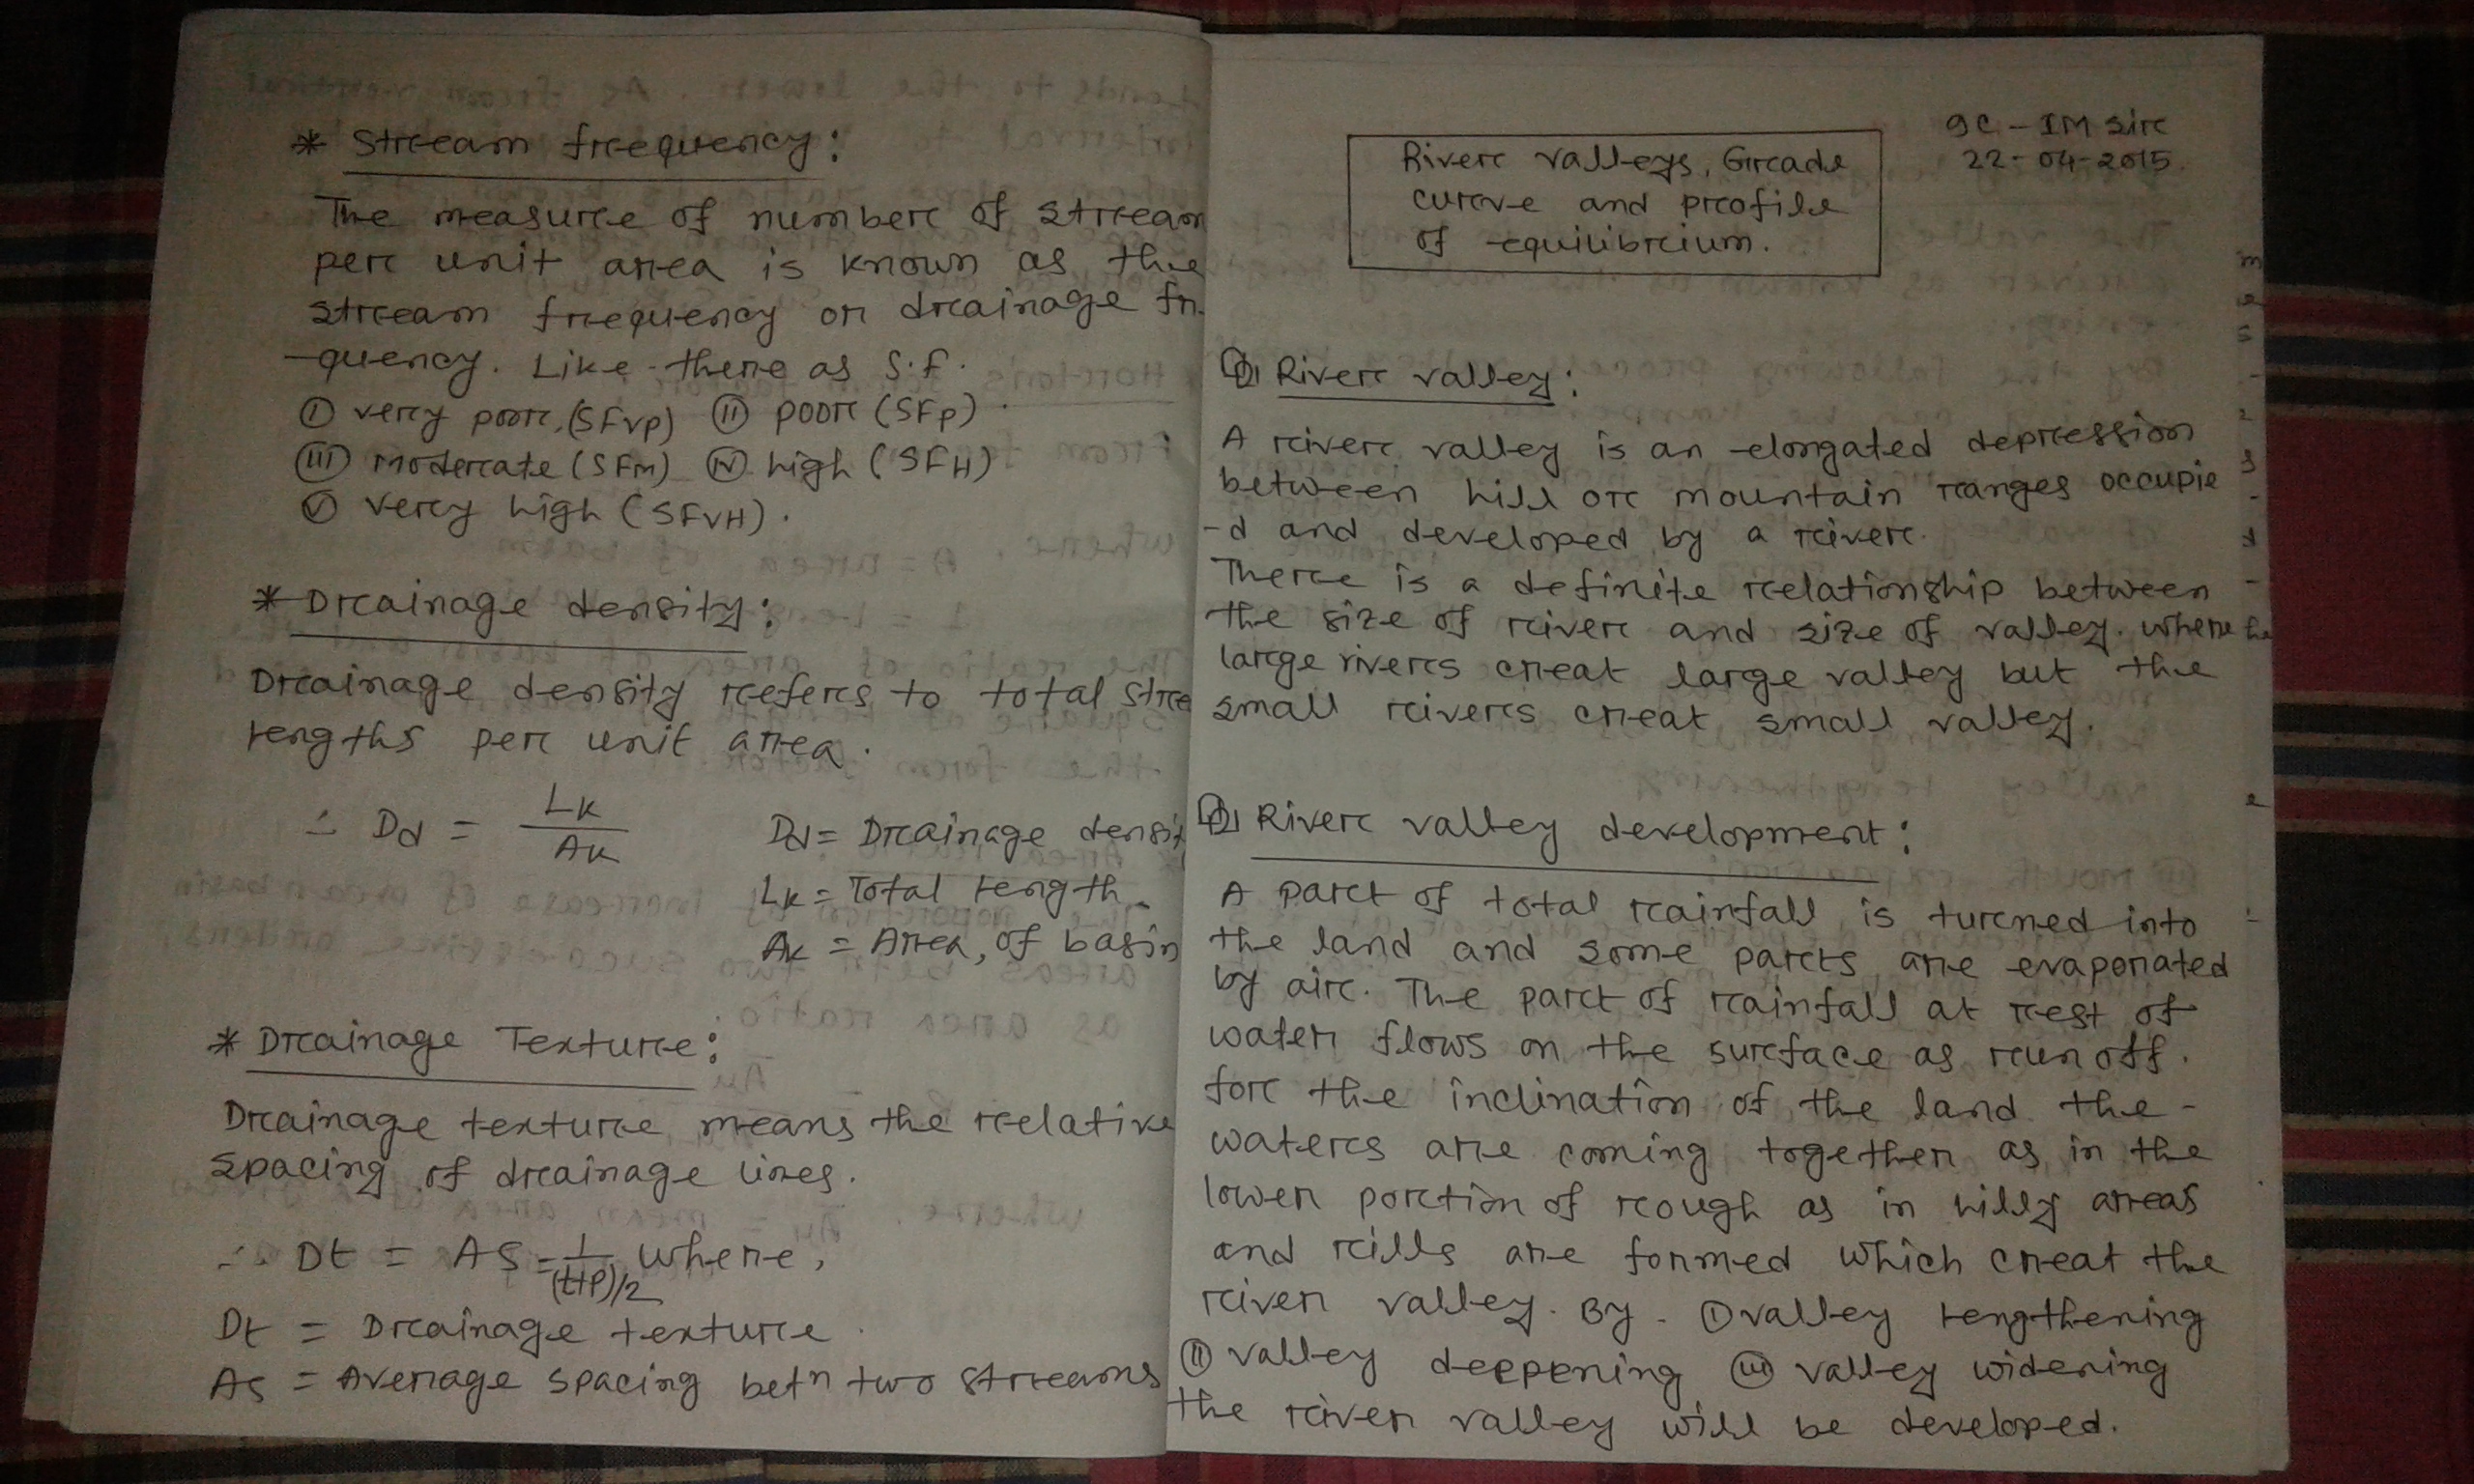 * Stream frequency:
The measure of number of stream
per unit area is known as the
stream frequency or drainage fr.
-quency. Like there as S.F.
(I) very poor, (SFVP) (II) poor (SFP)
(III) Moderate (SFM) (IV) high (SFH)
(V) very high (SFVH).
* Drainage density:
Drainage density refers to total stre
lengths per unit area.
∴ Dd = Lk / Ak
Dd = Drainage densit
Lk = Total length
Ak = Area, of basin
* Drainage Texture:
Drainage texture means the relative
spacing of drainage lines.
∴ Dt = AS = 1/(t+P)/2 where,
Dt = Drainage texture.
AS = Average spacing betn two streams
9C - IM sir
22-04-2015.
River valleys, Grade
curve and profile
of equilibrium.
River valley:
A river valley is an elongated depression
between hill or mountain ranges occupie
-d and developed by a river.
There is a definite relationship between
the size of river and size of valley. where
large rivers creat large valley but the
small rivers creat small valley.
River valley development:
A part of total rainfall is turned into
the land and some parts are evaporated
by air. The part of rainfall at rest of
water flows on the surface as run off.
for the inclination of the land the-
waters are coming together as in the
lower portion of rough as in hilly areas
and rills are formed which creat the
river valley. By. (I) valley lengthening
(II) valley deeppening (III) valley widening
the river valley will be developed.